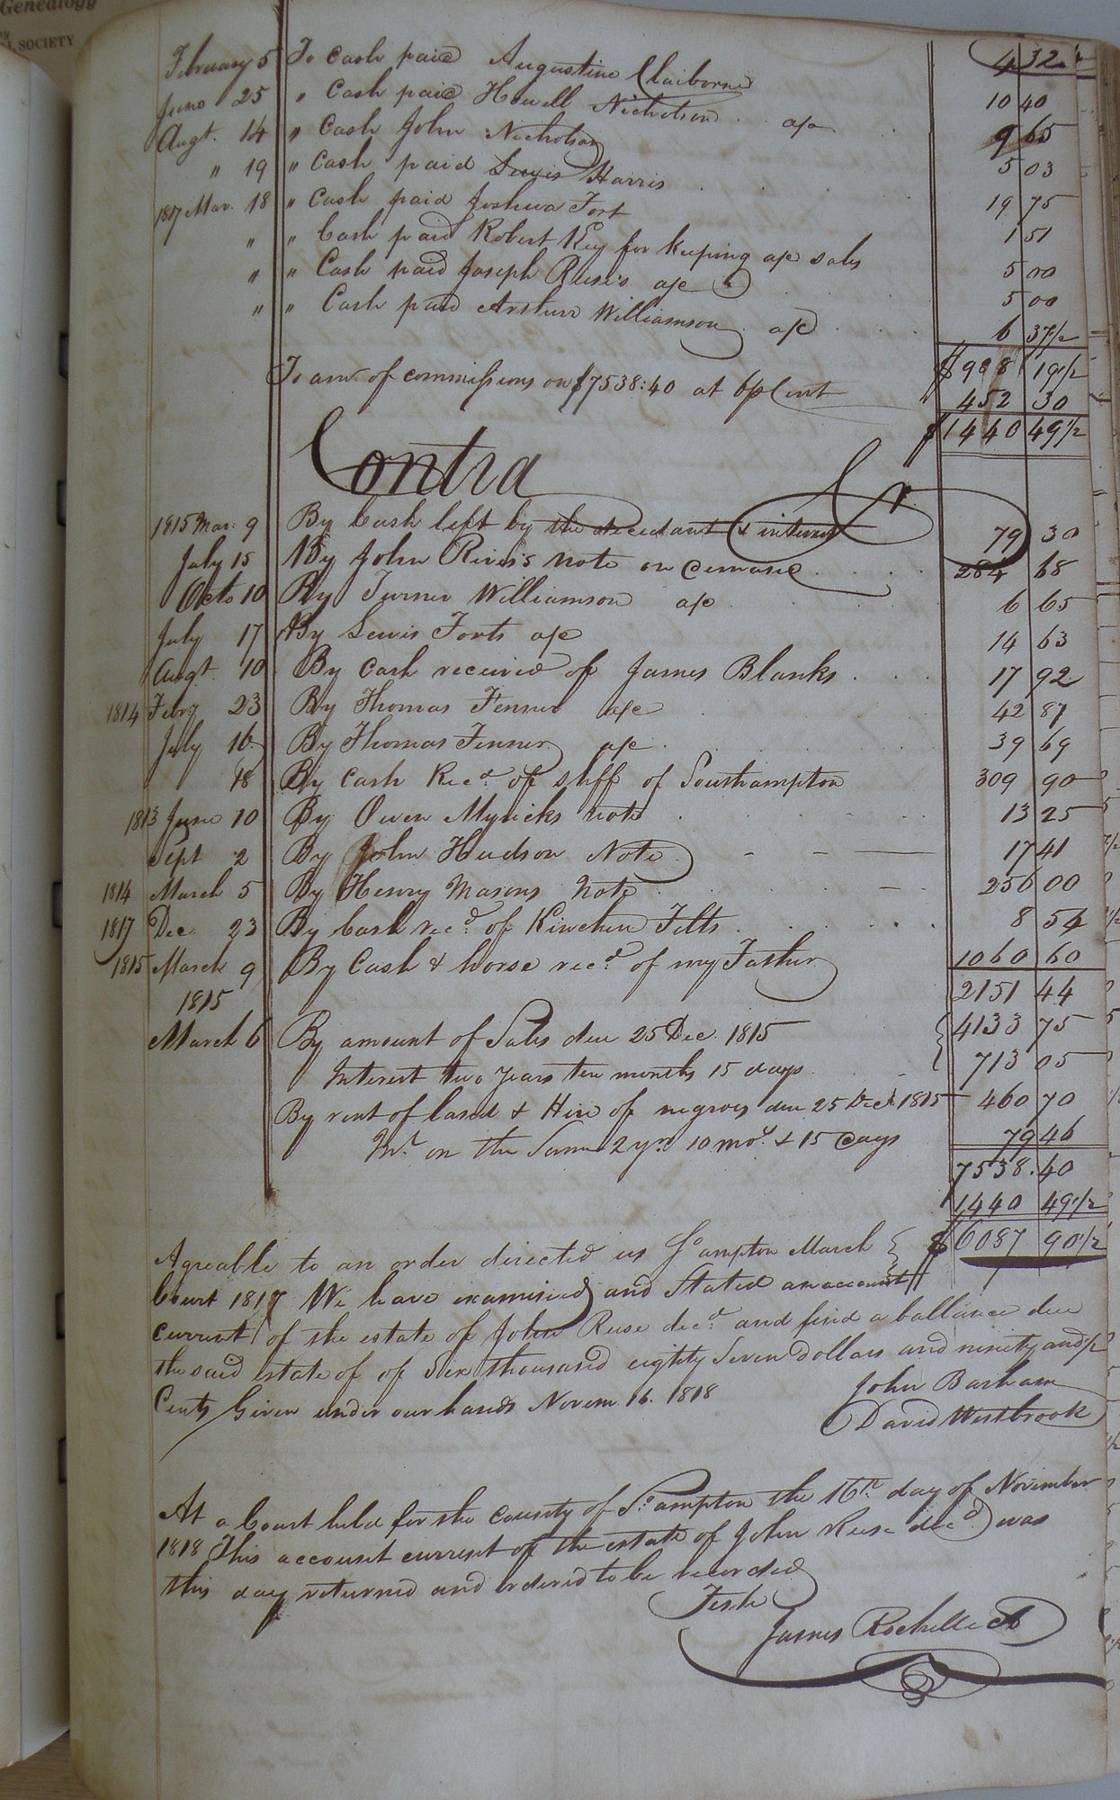 Genealogy
SOCIETY
432
February 5 To Cash paid Augustine Claiborne 10 40
June 25 " Cash paid Howell Nicholson a/c 9 65
Augt. 14 " Cash John Nicholson 5 03
" 19 " Cash paid Lewis Harris 19 75
1817 Mar. 18 " Cash paid Joshua Fort 1 51
" " Cash paid Robert Key for keeping a/c sales 5 00
" " Cash paid Joseph Reese's a/c 5 00
" " Cash paid Arthur Williamson a/c 6 37 1/2
$988 19 1/2
To amt. of commissions on $7538:40 at 6 p Cent 452 30
$1440 49 1/2
Contra Cr
1815 Mar. 9 By Cash left by the decedant & interest 79 30
July 15 By John Rives's note on 284 68
Octo 10 By Turner Williamson a/c 6 65
July 17 By Lewis Forts a/c 14 63
Augt. 10 By Cash received of James Blanks 17 92
1814 Feby 23 By Thomas Fenner a/c 42 87
July 16 By Thomas Fenner a/c 39 69
18 By Cash Recd. of shff of Southampton 309 90
1813 June 10 By Owen Myricks note 13 25
Sept 2 By John Hudson Note 17 41
1814 March 5 By Henry Masons Note 256 00
1817 Dec. 23 By Cash recd. of Kinchen Felts 8 54
1815 March 9 By Cash & horse recd. of my Father 1060 60
1815 2151 44
March 6 By amount of Sales due 25 Dec. 1815 4133 75
Interest two years ten months 15 days 713 05
By rent of land & Hire of negroes due 25 Dec 1815 460 70
Int. on the Same 2 yrs 10 mos. & 15 days 79 46
7538.40
1440 49 1/2
$6087 90 1/2
Agreable to an order directed us So. ampton March
Court 1817 We have examined and Stated an account
current of the estate of John Reese decd. and find a ballance due
the said estate of of Six thousand eighty Seven Dollars and ninety and 1/2
Cents Given under our hands Novem 16. 1818
John Barham
David Westbrook
At a Court held for the County of So. ampton the 16th day of November
1818 This account current of the estate of John Reese decd. was
this day returned and ordered to be recorded
Teste
James Rochelle